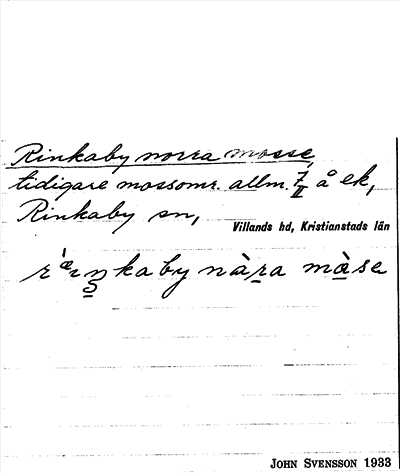 Rinkaby norra mosse,
tidigare mossomr. allm. 7/II å ek,
Rinkaby sn,
Villands hd, Kristianstads län
kaby nàra màse
JOHN SVENSSON 1933